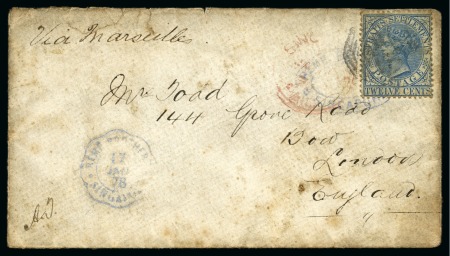 Via Marseilles.
STRAITS SETTLEMENTS
POSTAGE
TWELVE CENTS
Mr Todd
144 Grove Road
Bow
London
England.
17
78